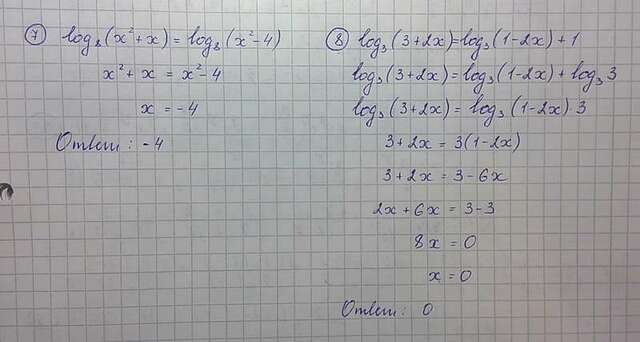 ⑦ log₈(x²+x) = log₈(x²-4)
x²+x = x²-4
x = -4
Ответ: -4
⑧ log₃(3+2x)=log₃(1-2x)+1
log₃(3+2x) = log₃(1-2x) + log₃3
log₃(3+2x) = log₃(1-2x)·3
3+2x = 3(1-2x)
3+2x = 3-6x
2x+6x = 3-3
8x = 0
x = 0
Ответ: 0